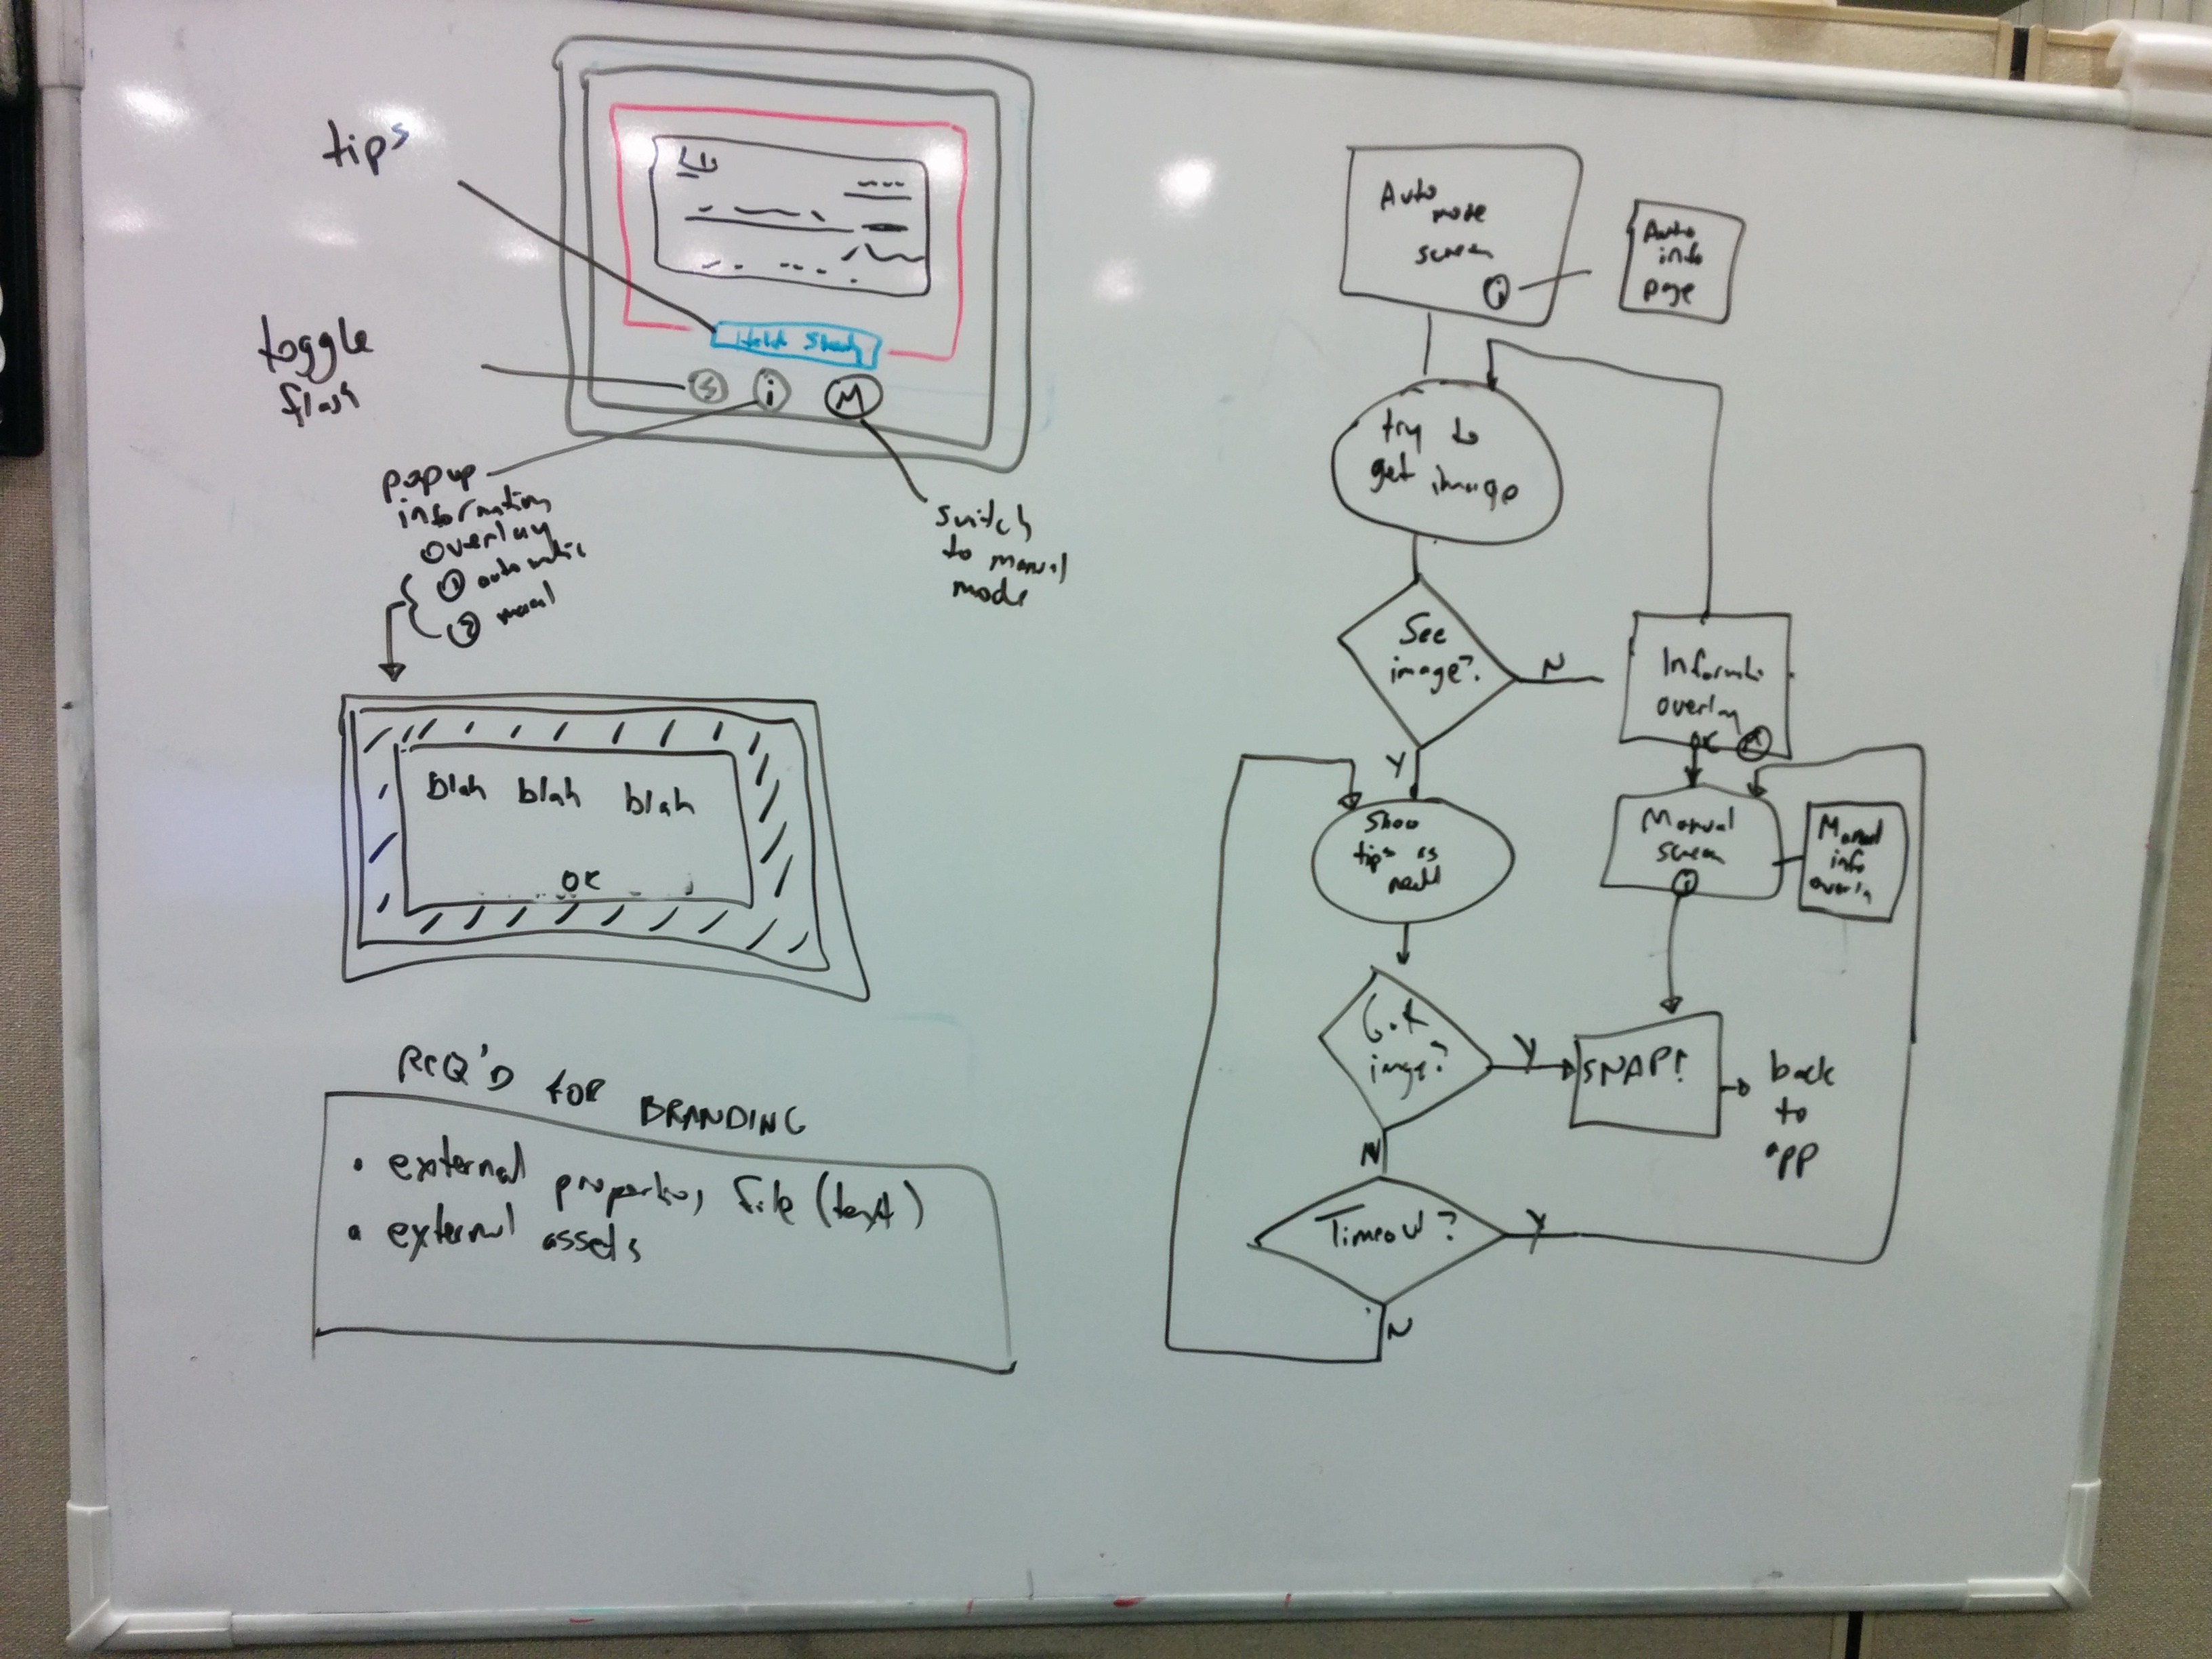 tips
Hold Steady
i
M
toggle
flash
popup
information
overlay
① automatic
② manual
switch
to manual
mode
Blah blah blah
OK
REQ'D FOR BRANDING
• external properties file (text)
• external assets
Auto
mode
screen
i
Auto
info
page
try to
get image
See
image?
N
Y
Informati
overlay
OK M
Show
tips as
need
Manual
screen
i
Manual
info
overla
Got
image?
Y
SNAP!
back
to
app
N
Timeout?
Y
N